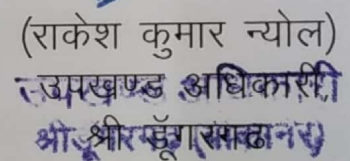 (राकेश कुमार न्योल)
उपखण्ड अधिकारी
श्री डूँगरगढ